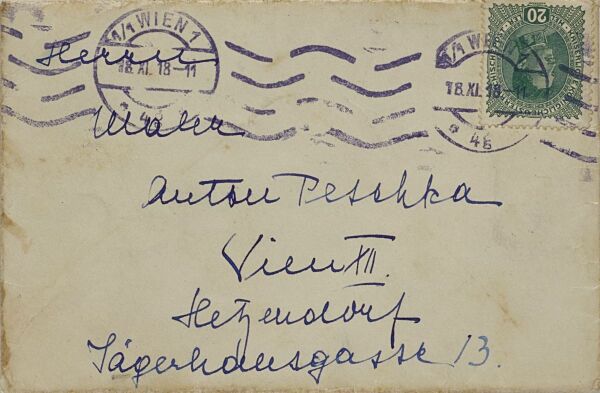 1/1 WIEN 1
18. XI. 18-11
* 4g
1/1 WIEN
18. XI. 18-11
* 4g
20
Herrn
Maler
Anton Peschka
Wien XII.
Hetzendorf
Jägerhausgasse 13.